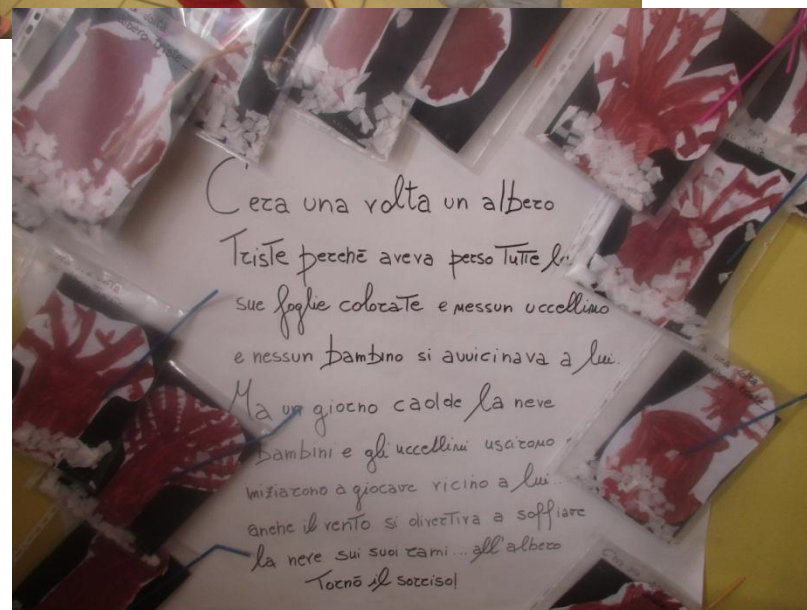 C'era una volta un albero
Triste perchē aveva perso Tutte le
sue foglie colorate e nessun uccellino
e nessun bambino si avvicinava a lui.
Ma un giorno cadde la neve
bambini e gli uccellini uscirono
iniziarono a giocare vicino a lui...
anche il vento si divertiva a soffiare
la neve sui suoi rami... all'albero
Tornō il sorriso!